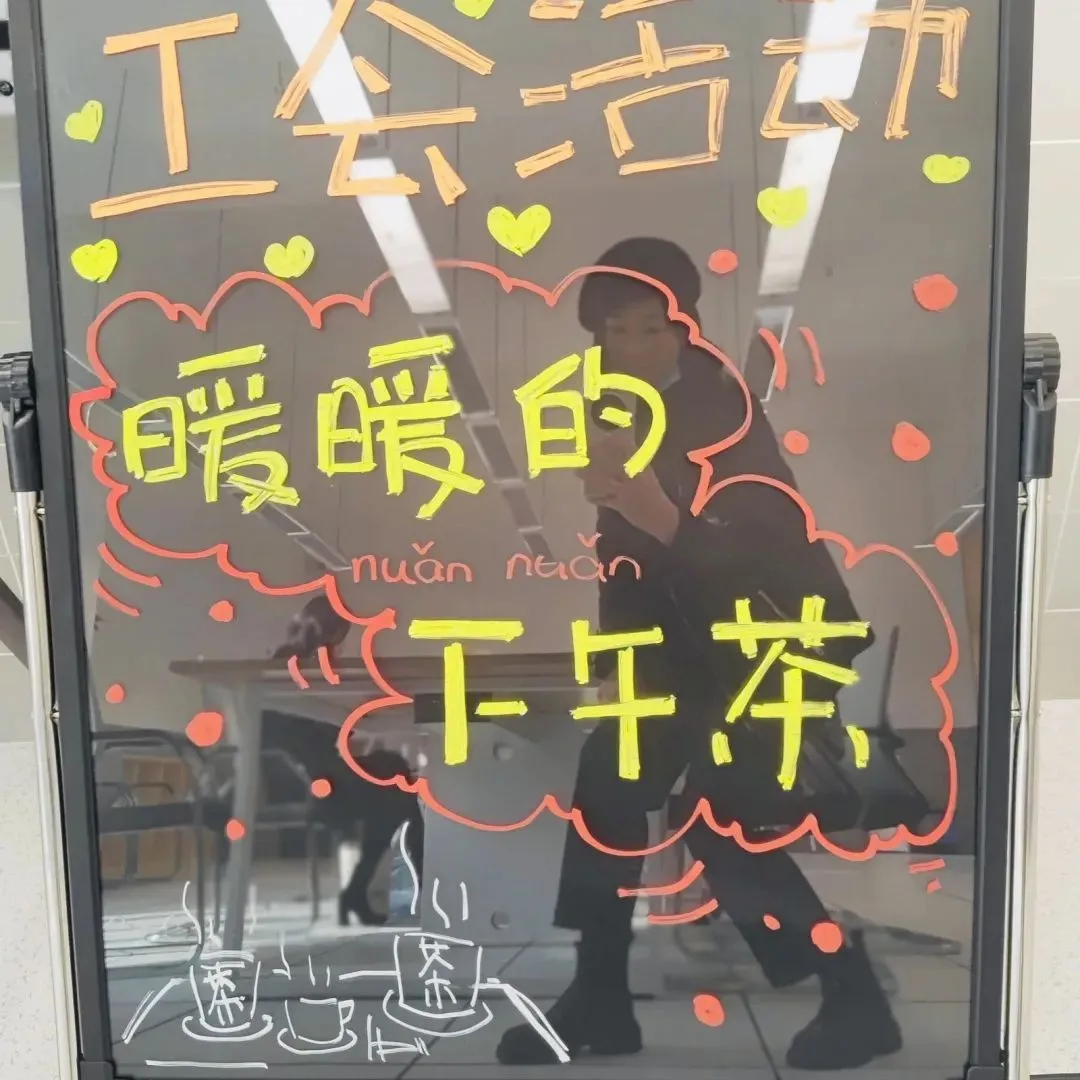 工会活动
暖暖的
nuǎn nuǎn
下午茶
茶 茶